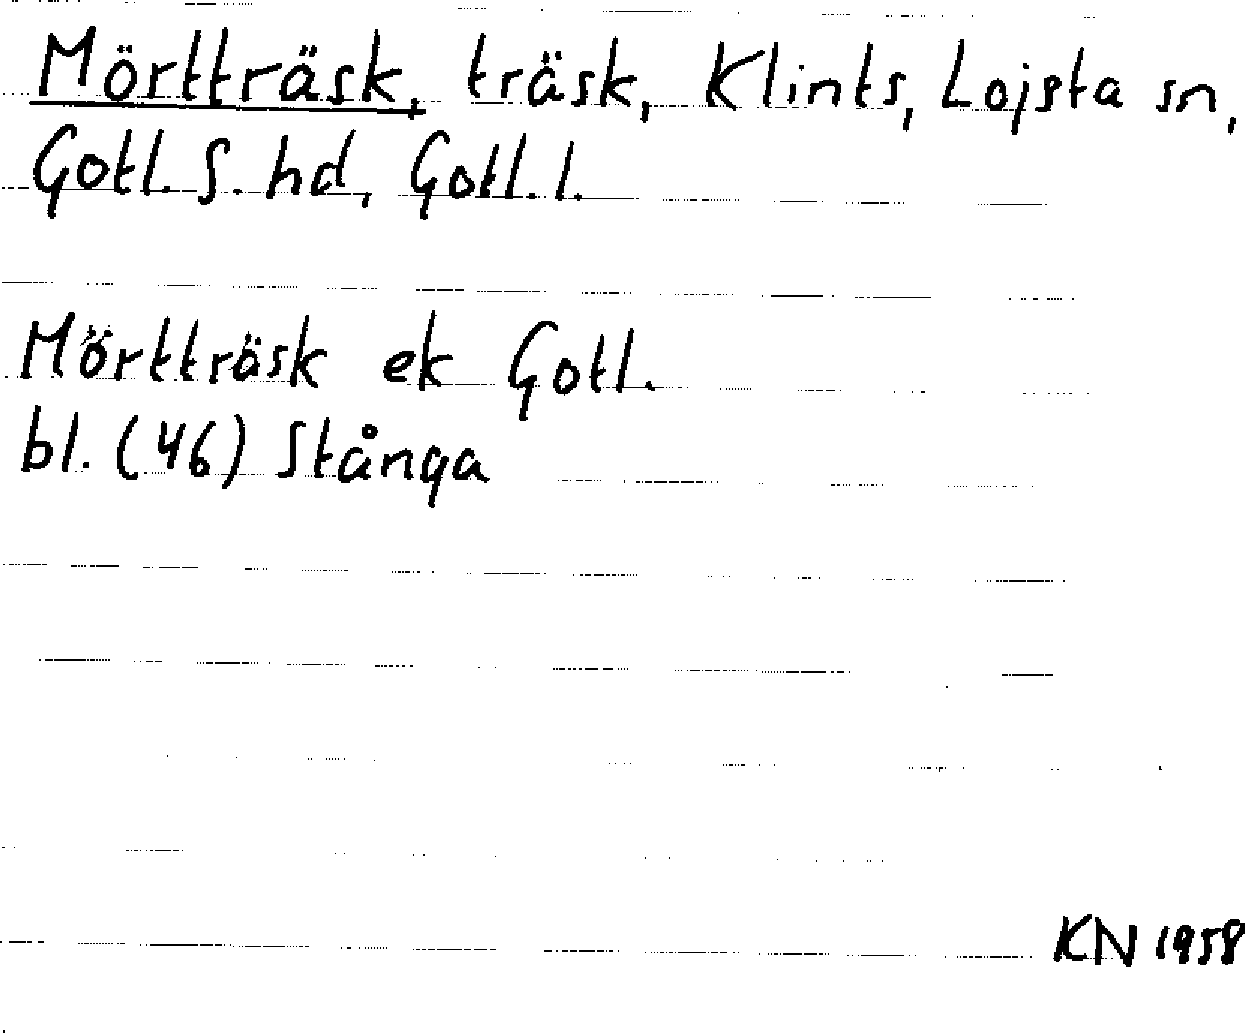 Mörtträsk, träsk, Klints, Lojsta sn,
Gotl. S. hd, Gotl. l.
Mörtträsk ek Gotl.
bl. (46) Stånga
KN 1958